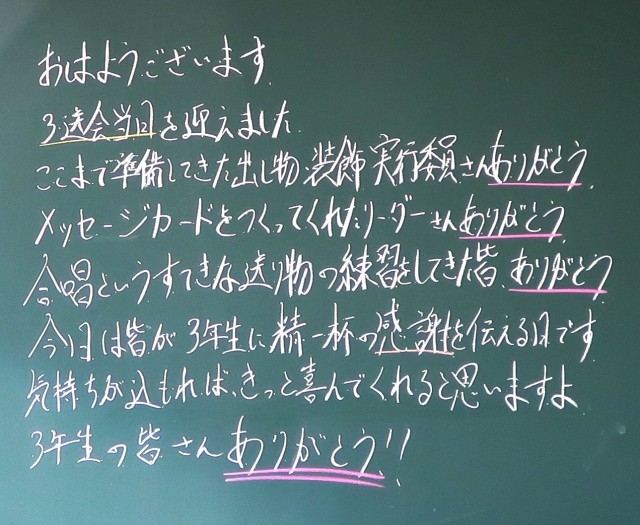 おはようございます
3送会当日を迎えました
ここまで準備してきた出し物、装飾 実行委員さんありがとう
メッセージカードをつくってくれたリーダーさんありがとう
合唱というすてきな送り物の練習をしてきた皆、ありがとう
今日は皆が3年生に精一杯の感謝を伝える日です
気持ちが込もれば、きっと喜んでくれると思いますよ
3年生の皆さんありがとう!!